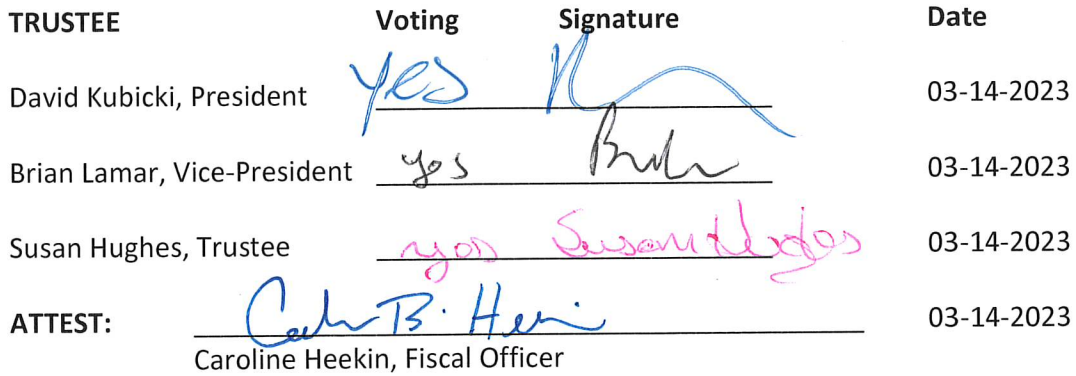 TRUSTEE Voting Signature Date
David Kubicki, President Yes 03-14-2023
Brian Lamar, Vice-President yes 03-14-2023
Susan Hughes, Trustee yes Susan Hughes 03-14-2023
ATTEST: B. 03-14-2023
Caroline Heekin, Fiscal Officer